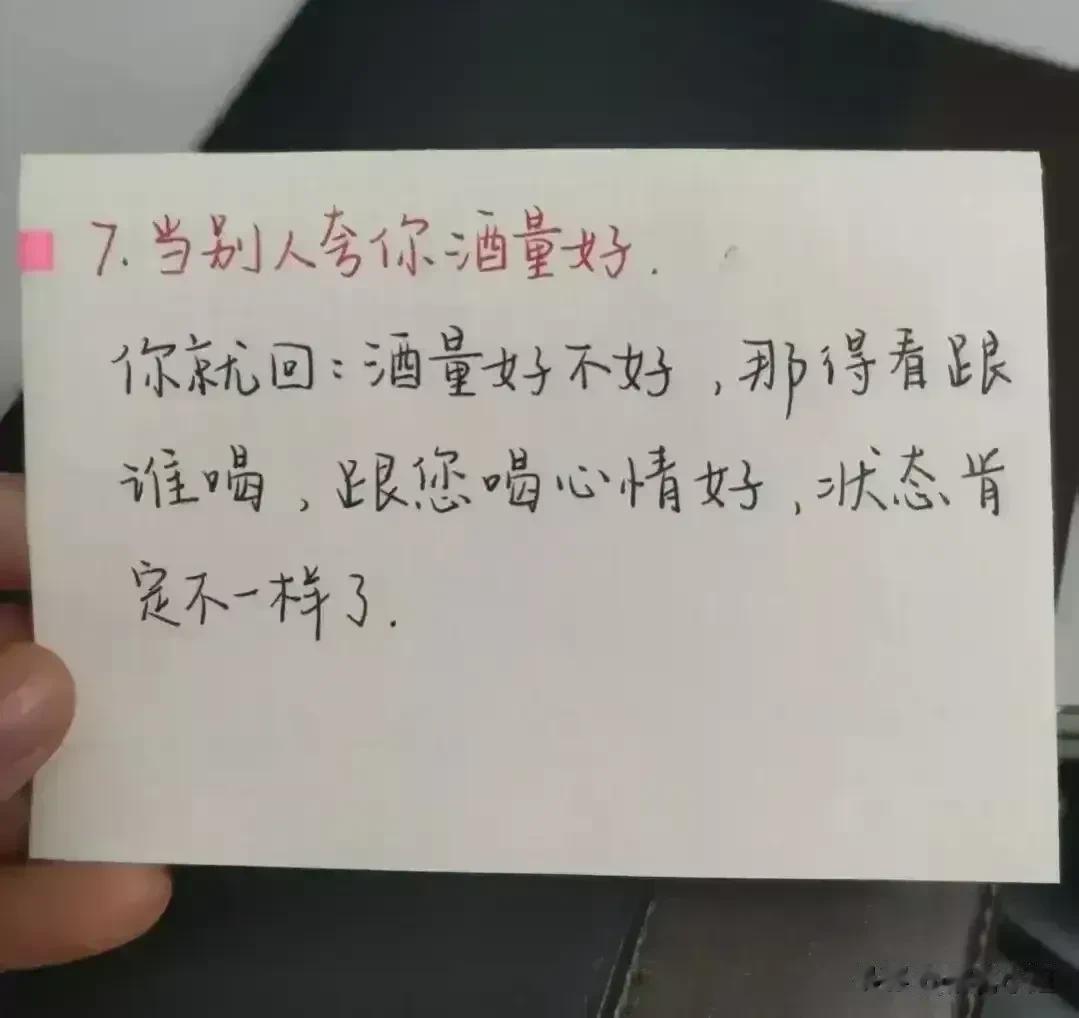 7.当别人夸你酒量好.
你就回:酒量好不好,那得看跟
谁喝,跟您喝心情好,状态肯
定不一样了.